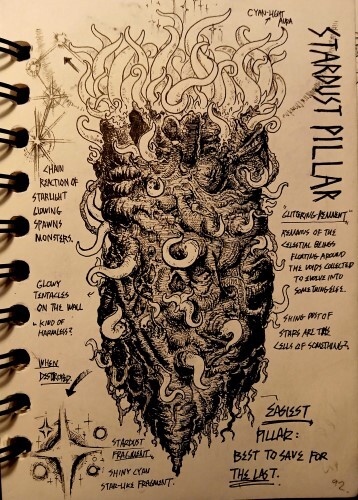 CYAN-LIGHT
AURA
STARDUST PILLAR
CHAIN
REACTION OF
STARLIGHT
SPAWNS
MONSTERS.
"GLITTERING REMNENT"
REMAINS OF THE
CELESTIAL BEINGS
FLOATING AROUND
THE VOIDS COLLECTED
TO EVOLVE INTO
SOMETHING ELSE.
GLOWY
TENTACLES
ON THE WALL
- KIND OF
HARMLESS?
SHINY DUST OF
STARS ARE THE
CELLS OF SOMETHING?
WHEN
DESTROYED
STARDUST
FRAGMENT
SHINY CYAN
STAR-LIKE FRAGMENT.
EASIEST
PILLAR:
BEST TO SAVE FOR
THE LAST.
92